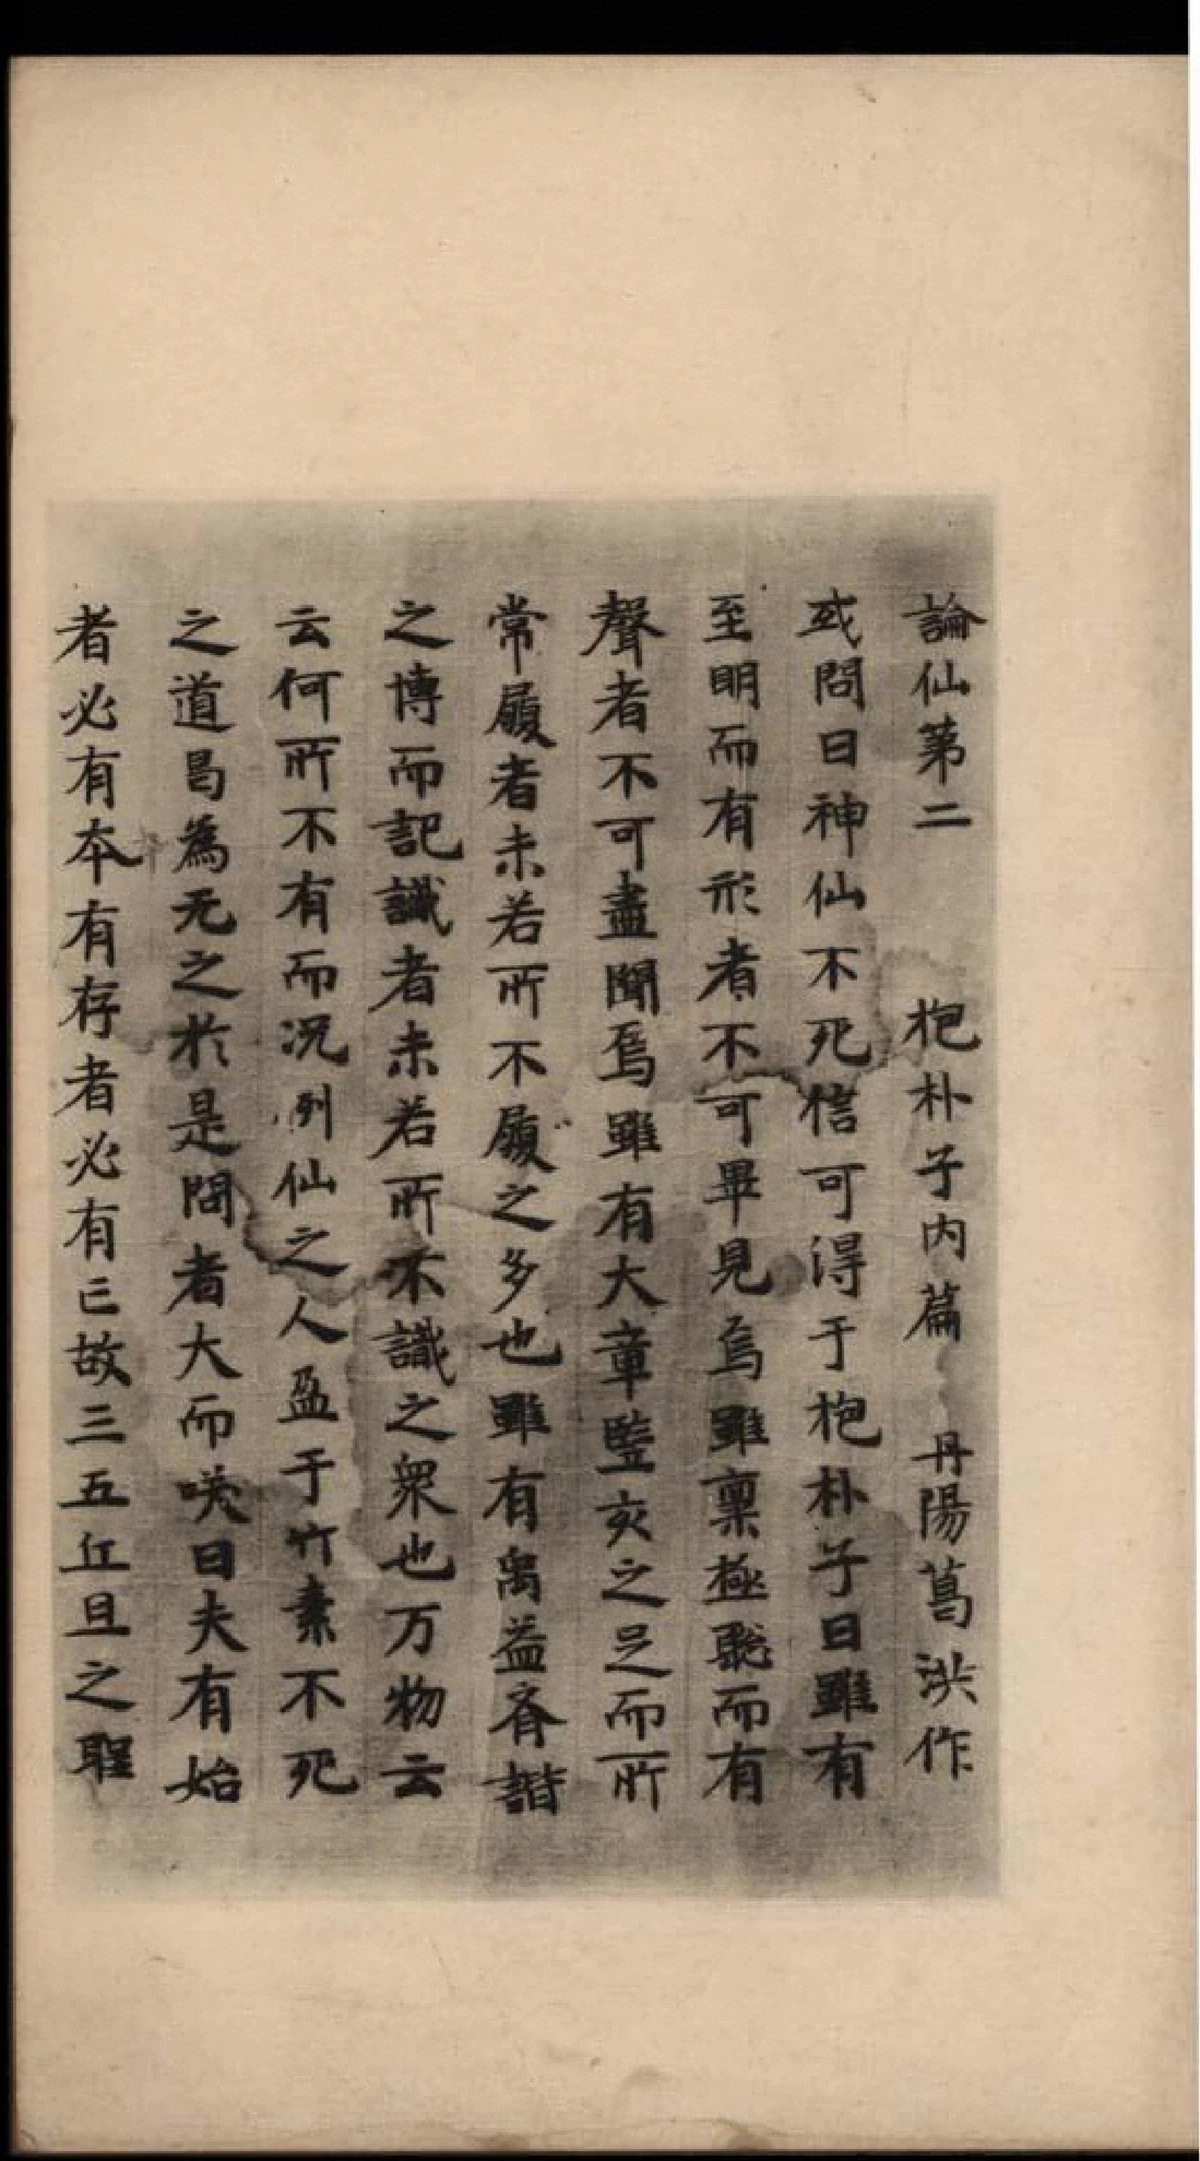 論仙第二 抱朴子内篇 丹陽葛洪作
或問曰神仙不死信可得于抱朴子曰雖有
至明而有形者不可畢見焉雖稟極聡而有
聲者不可盡聞焉雖有大章竪亥之足而所
常履者未若所不履之多也雖有禹益斉諧
之博而記識者未若所不識之衆也万物云
云何所不有而況列仙之人盈于竹素不死
之道曷為无之於是問者大而咲曰夫有始
者必有夲有存者必有亡故三五丘旦之聖